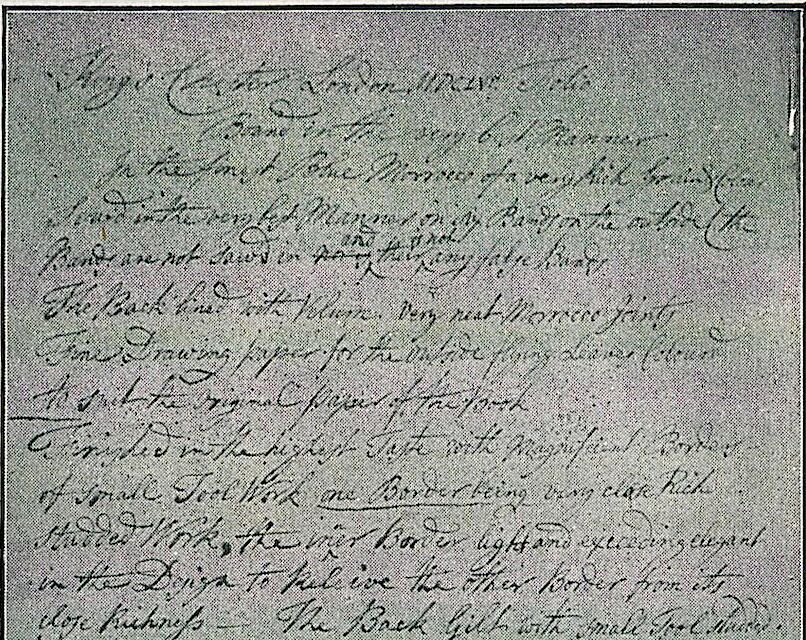 King's Chester London MDCLVI. Folio
Bound in the very best Manner
In the finest Blue Morroco of a very Rich Grain & Colour
Sewd in the very best Manner on Bands on the outside (the
Bands are not sawd in and their is not any false Bands
The Back lined with Velum. very neat Morroco Joints
Fine Drawing paper for the outside flying Leaves Colourd
to suit the original paper of the book
Finished in the highest Taste with Magnificent Borders
of small Tool Work one Border being very close Rich
studded Work, the iner Border light and exceeding elegant
in the Design to releive the other Border from its
close Richness — The Back Gilt with small Tool studded